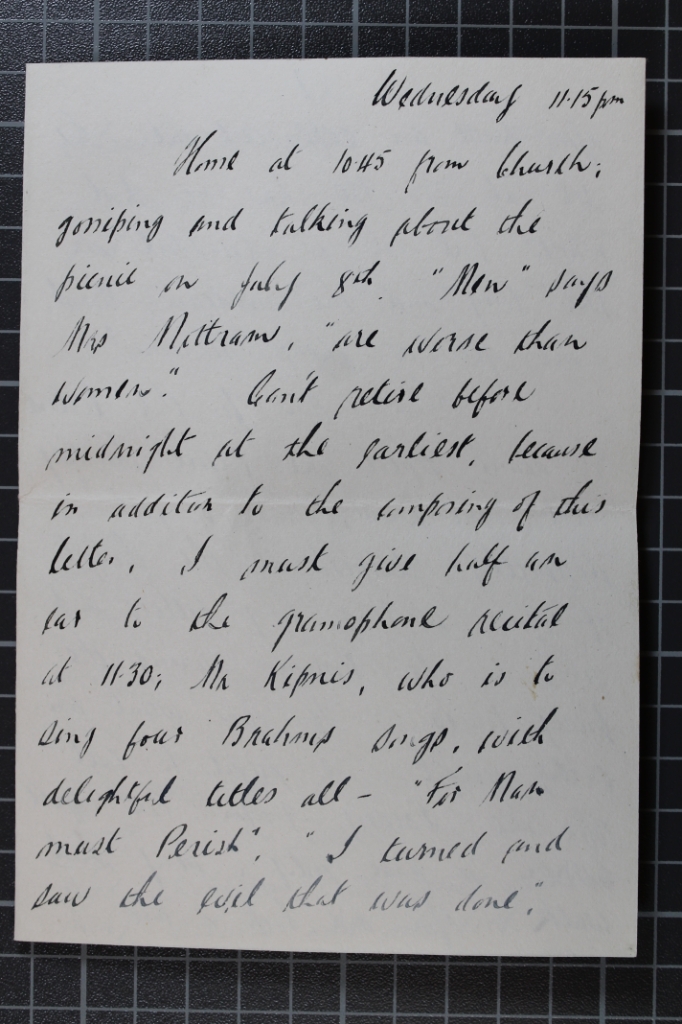 Wednesday 11.15 pm
Home at 10.45 from Church;
gossiping and talking about the
picnic on July 8th. "Men" says
Mrs Mottram, "are worse than
women." Can't retire before
midnight at the earliest, because
in addition to the composing of this
letter, I must give half an
ear to the gramophone recital
at 11.30; Mr Kipnis, who is to
sing four Brahms songs, with
delightful titles all - "For Man
must Perish", "I turned and
saw the evil that was done",